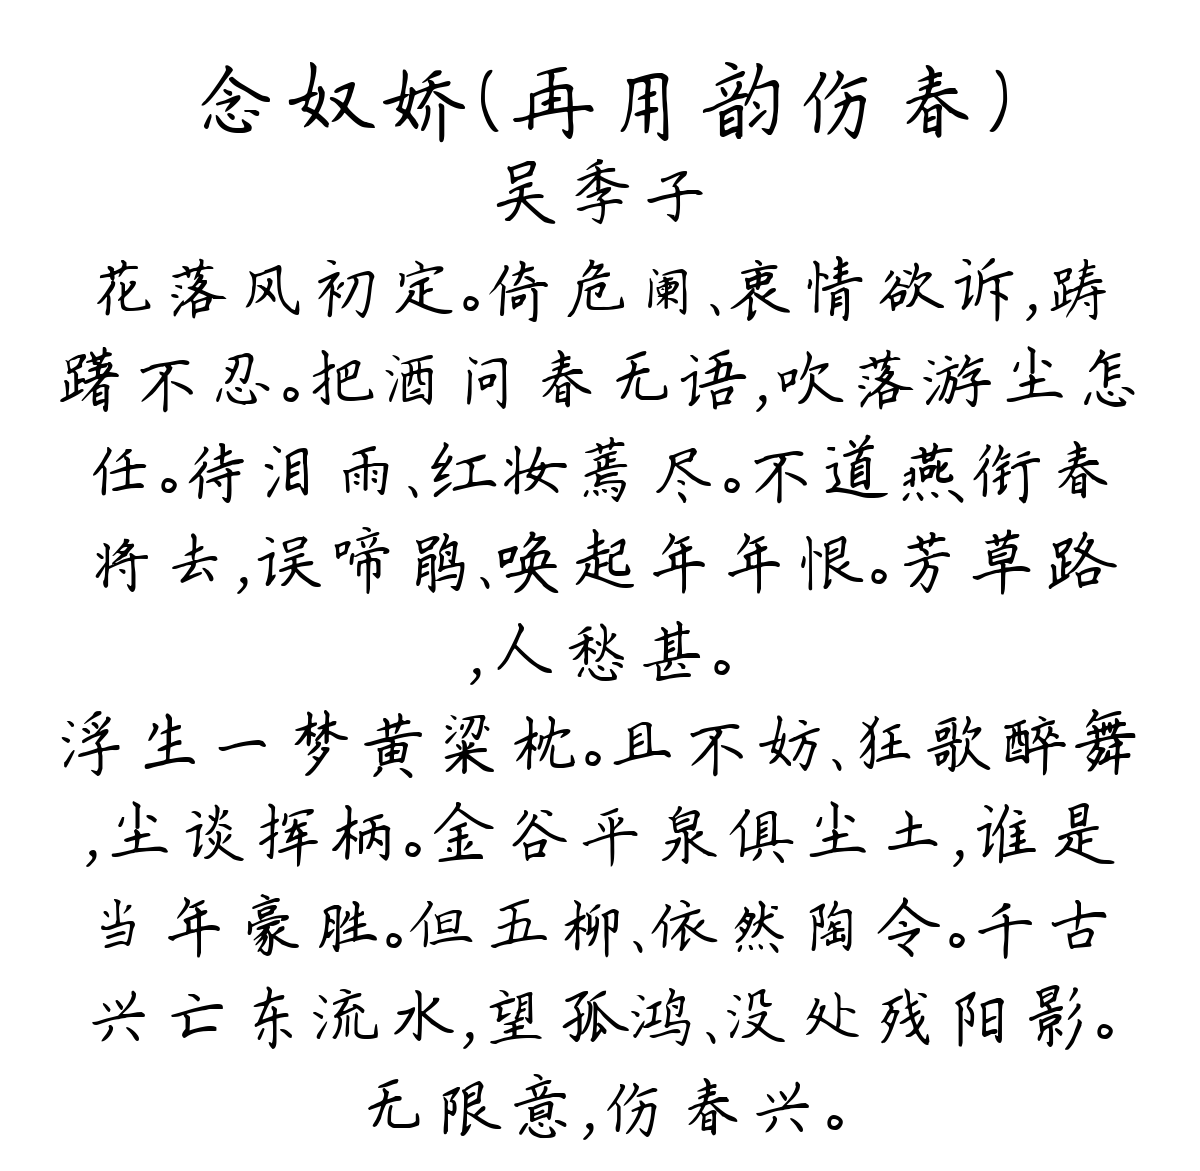 念奴娇(再用韵伤春)
吴季子
花落风初定。倚危阑、衷情欲诉,踌
躇不忍。把酒问春无语,吹落游尘怎
任。待泪雨、红妆蔫尽。不道燕衔春
将去,误啼鹃、唤起年年恨。芳草路
,人愁甚。
浮生一梦黄粱枕。且不妨、狂歌醉舞
,尘谈挥柄。金谷平泉俱尘土,谁是
当年豪胜。但五柳、依然陶令。千古
兴亡东流水,望孤鸿、没处残阳影。
无限意,伤春兴。